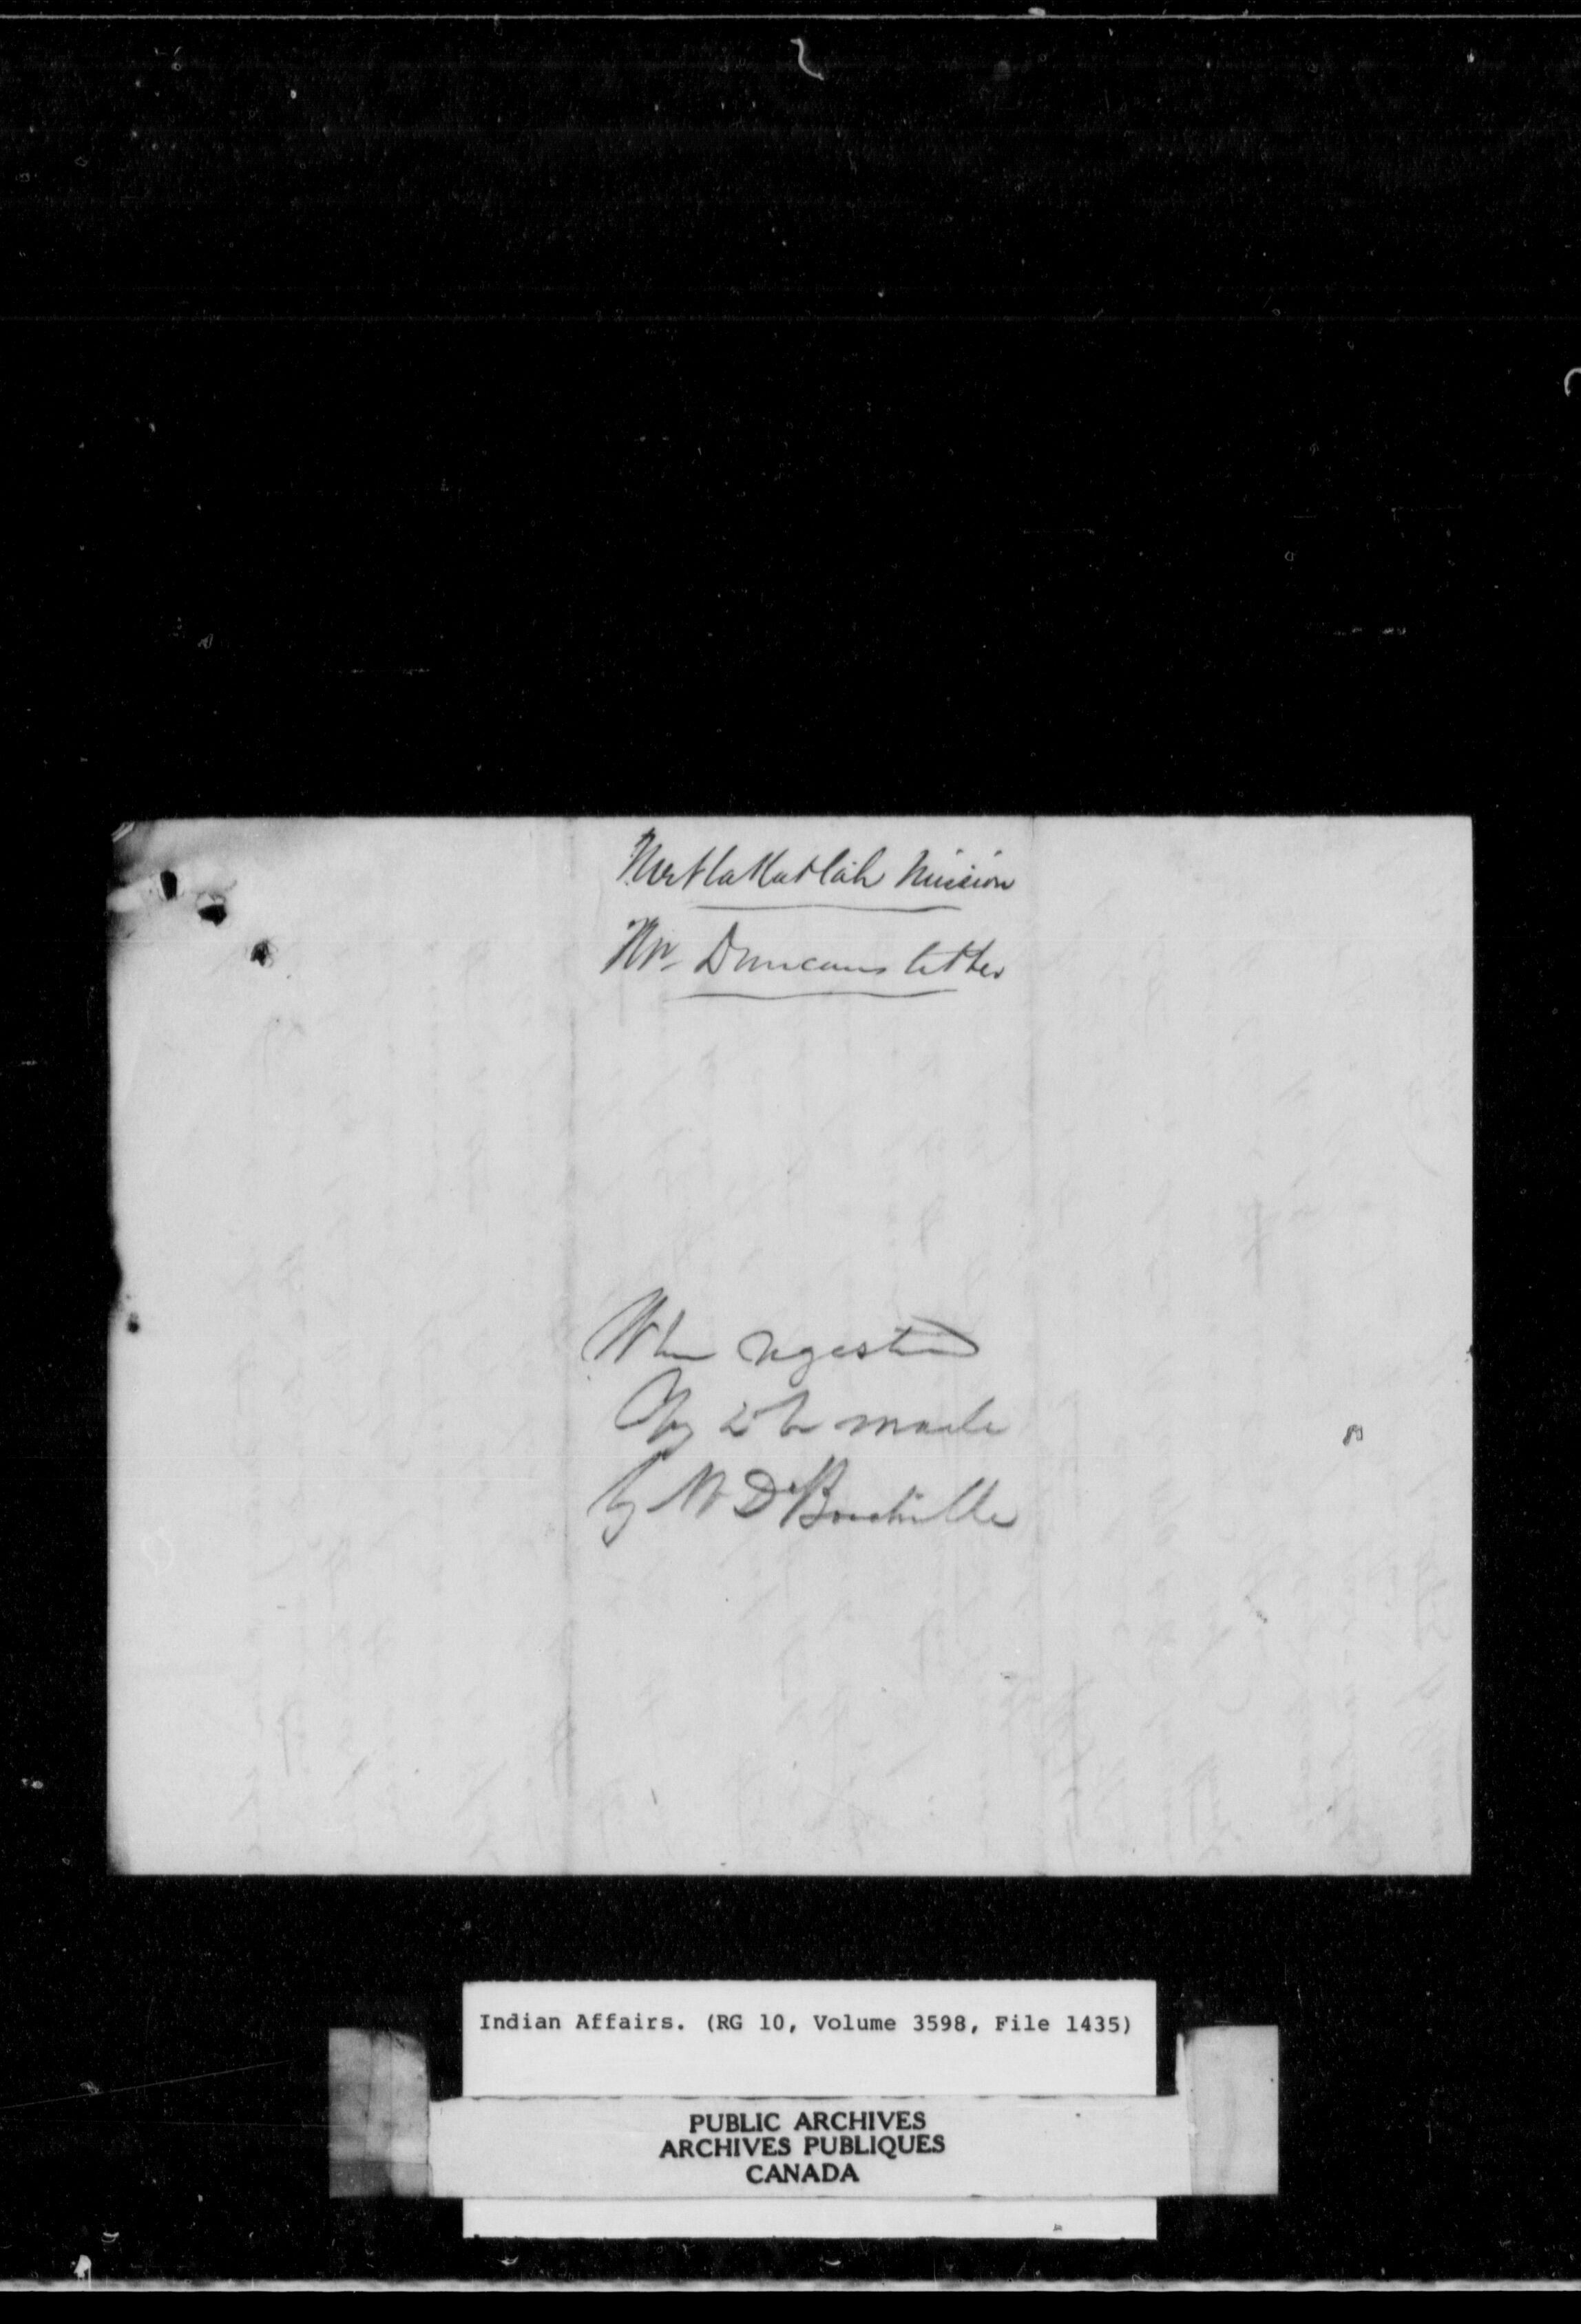 Metlakatlah Mission
Mr. Duncans letter
When registd
Copy to be made
by Mr De Boucherville
Indian Affairs. (RG 10, Volume 3598, File 1435)
PUBLIC ARCHIVES
ARCHIVES PUBLIQUES
CANADA